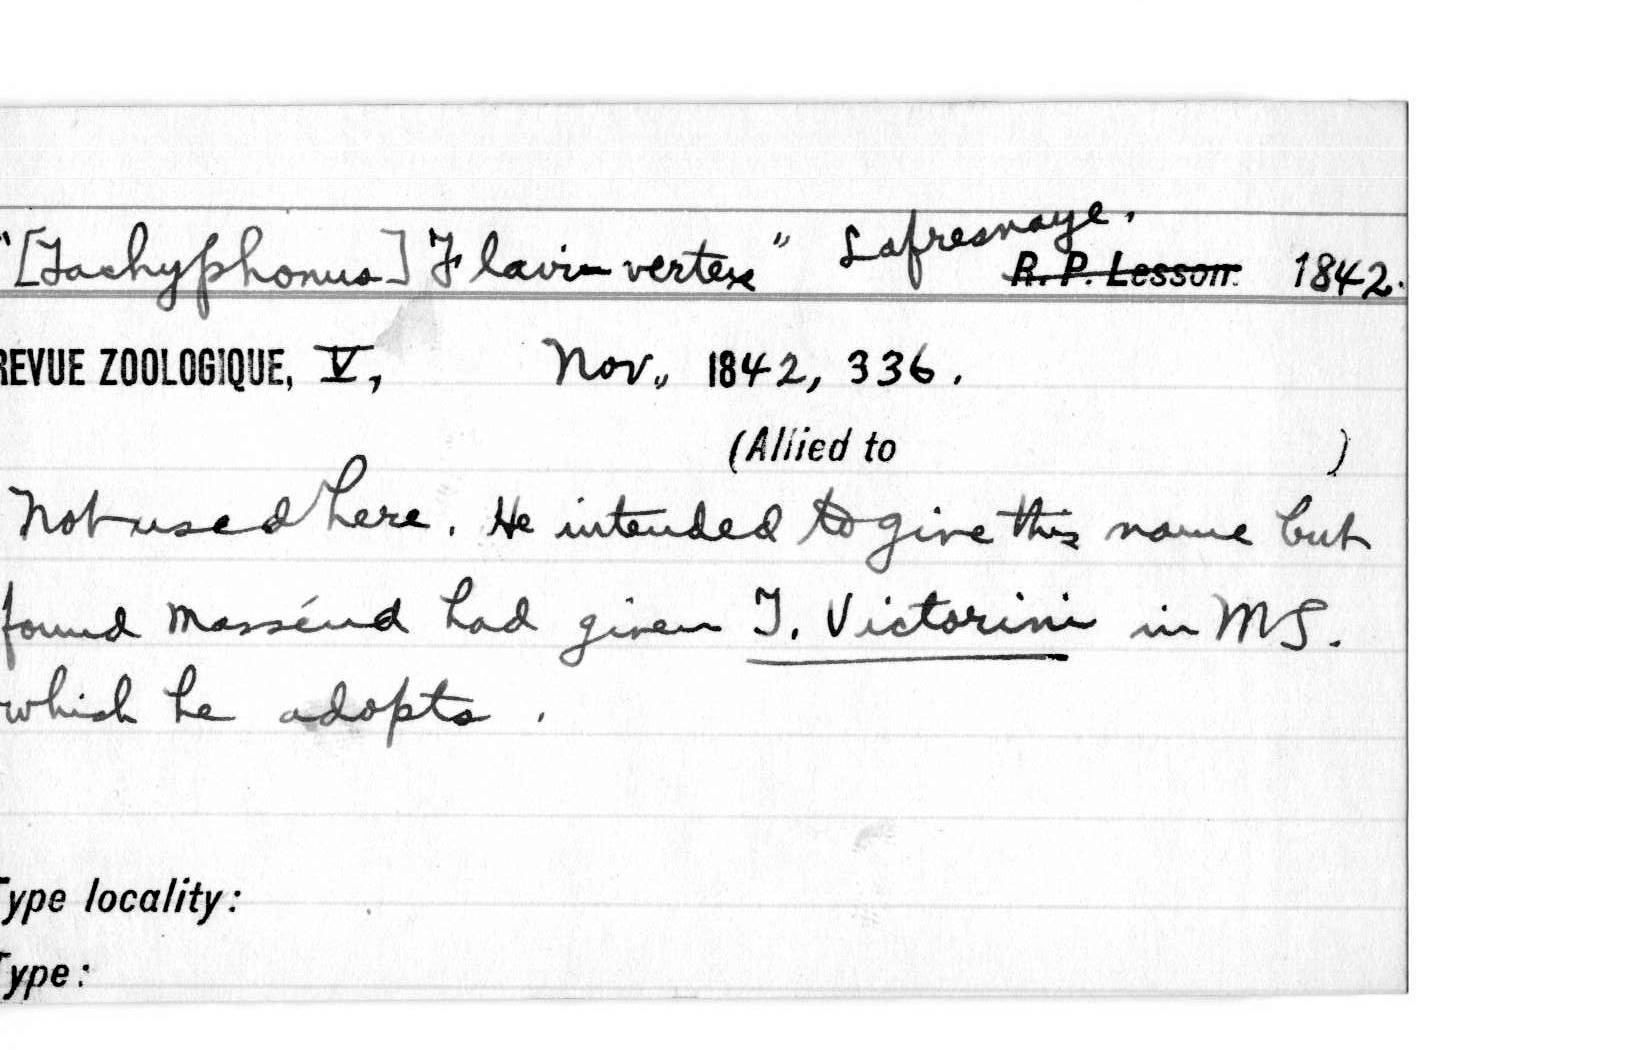 "[Tachyphonus] Flavi-vertex" Lafresnaye.
R. P. Lesson. 1842.
REVUE ZOOLOGIQUE, V, Nov., 1842, 336.
(Allied to )
Not used here. He intended to give this name but
found Masséna had given T. Victorini in MS.
which he adopts.
Type locality:
Type: